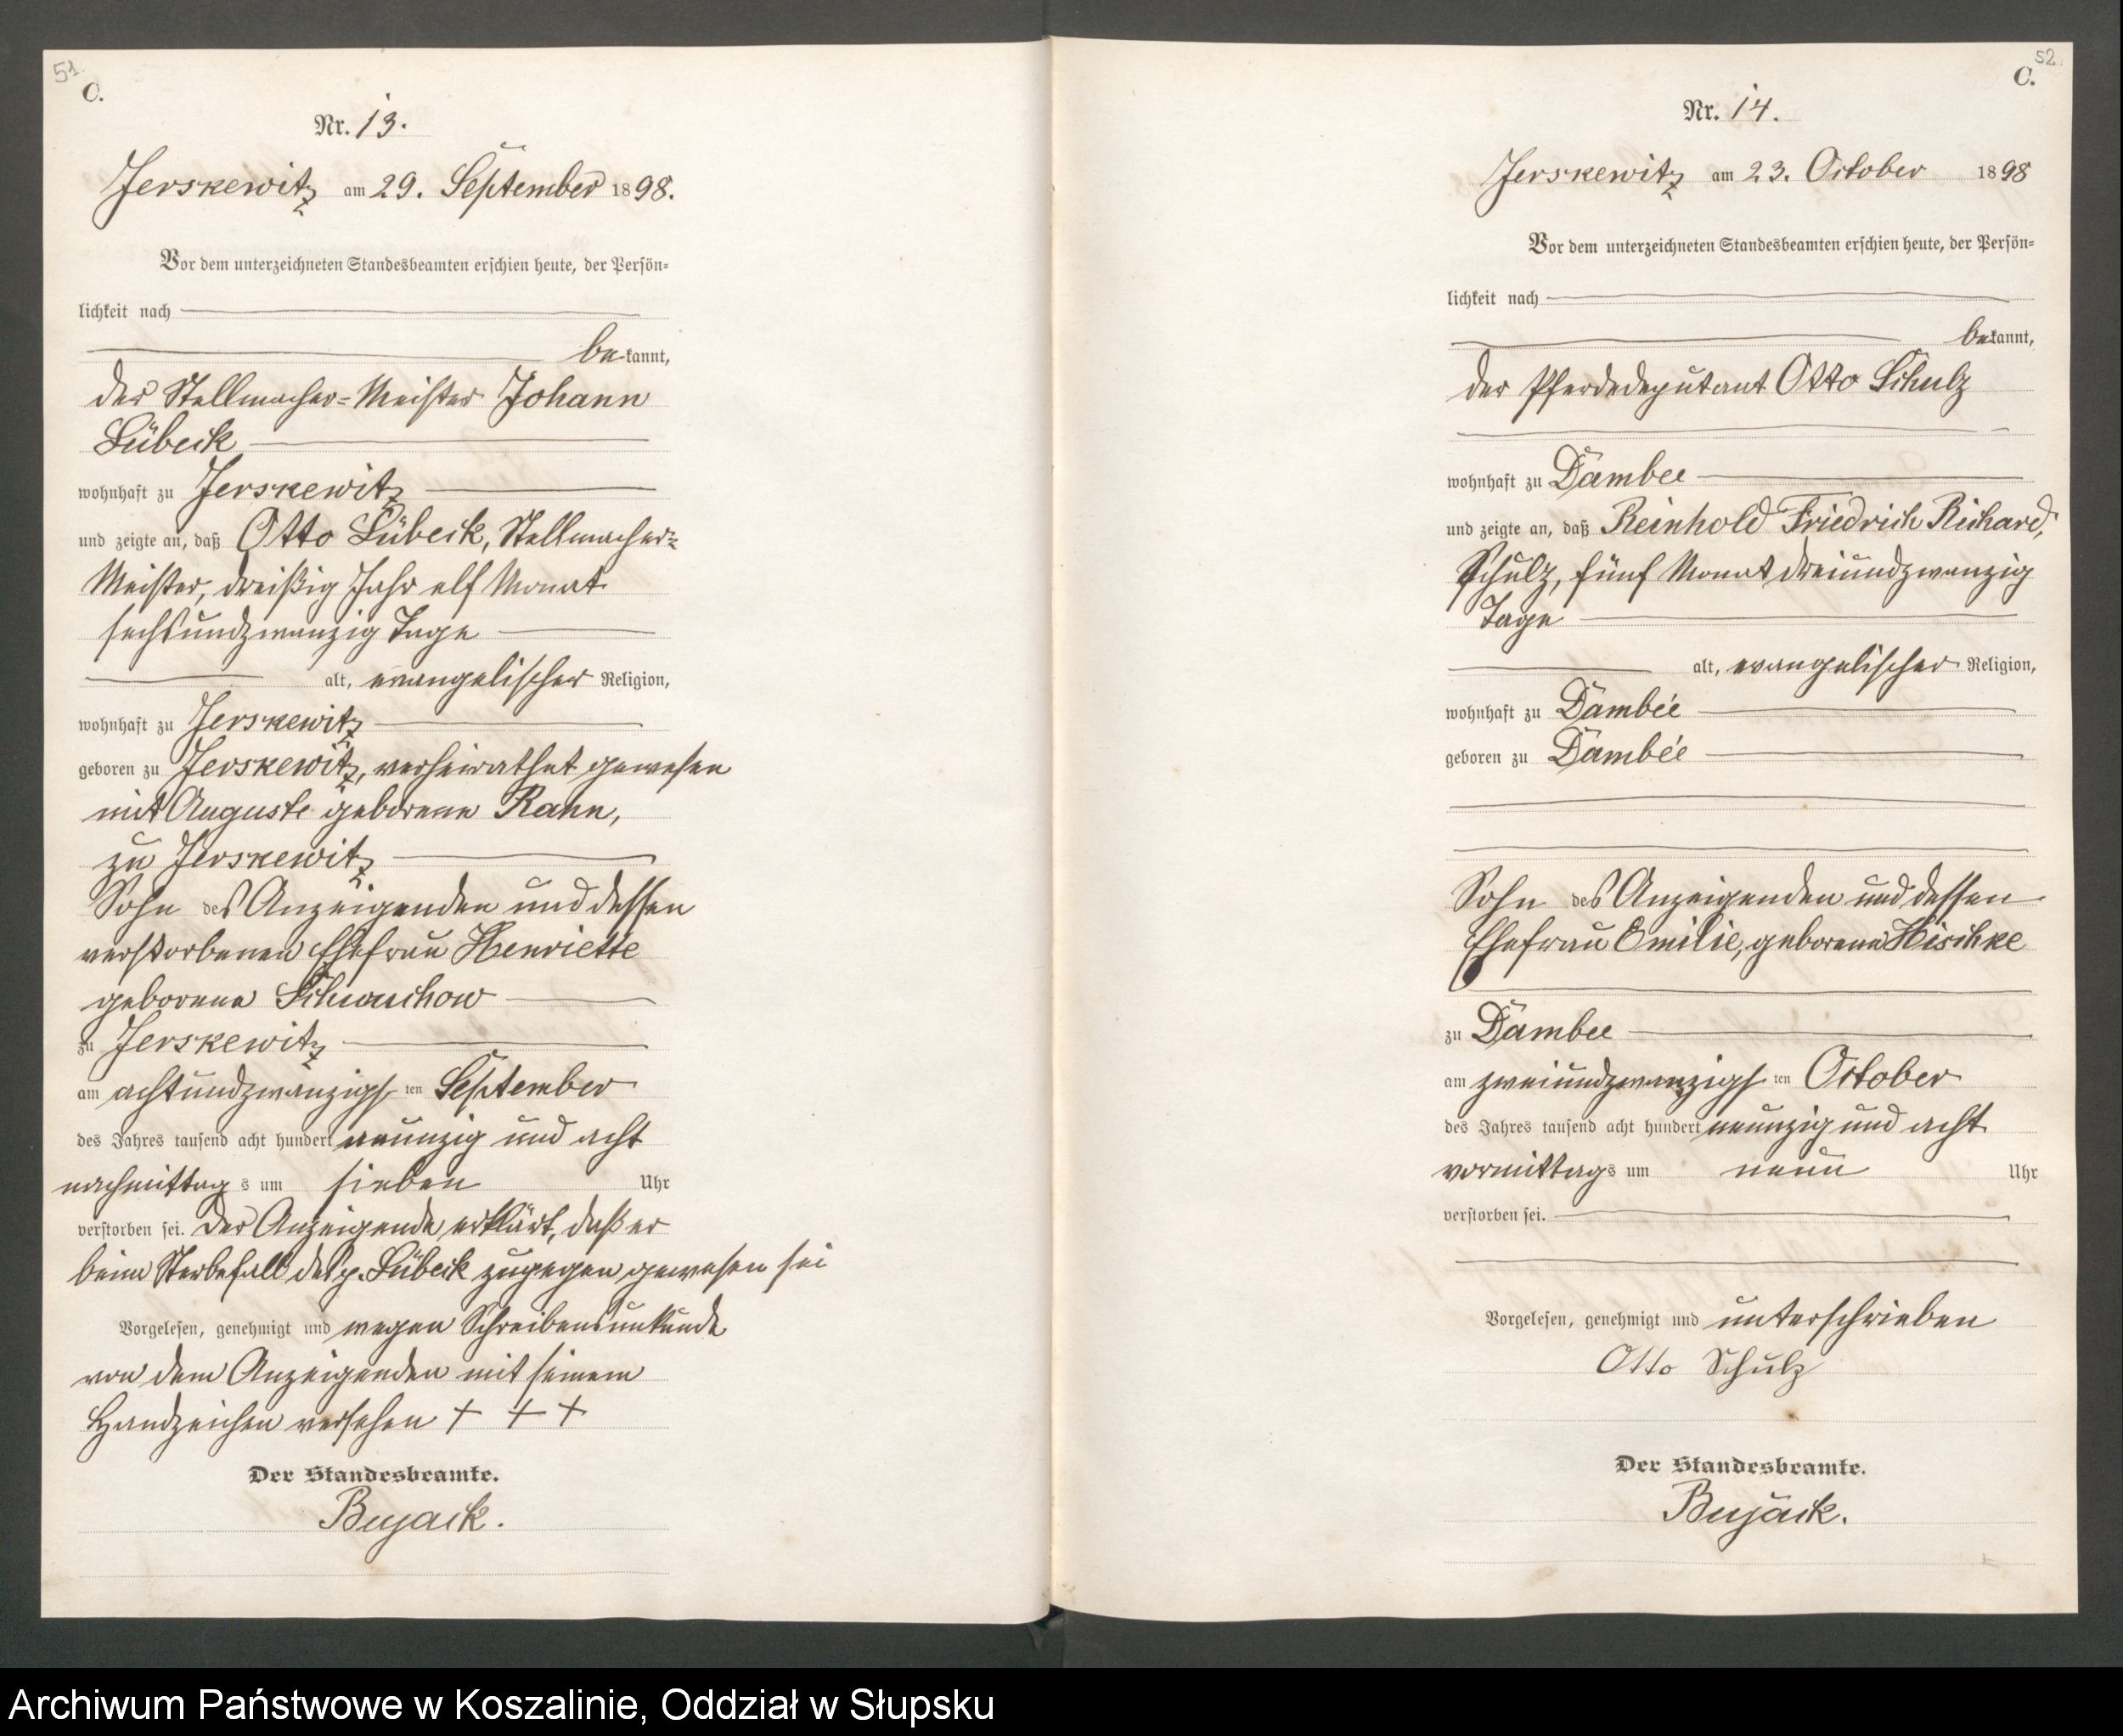 51.
C.
Nr. 13.
Jerskewitz am 29. September 1898.
Vor dem unterzeichneten Standesbeamten erschien heute, der Persön-
lichkeit nach
bekannt,
der Stellmacher-Meister Johann
Lübeck
wohnhaft zu Jerskewitz
und zeigte an, daß Otto Lübeck, Stellmacher-
Meister, dreißig Jahr elf Monat
sechsundzwanzig Tage
alt, evangelischer Religion,
wohnhaft zu Jerskewitz
geboren zu Jerskewitz, verheirathet gewesen
mit Auguste geborene Rahn,
zu Jerskewitz
Sohn des Anzeigenden und dessen
verstorbenen Ehefrau Henriette
geborene Schwuchow
zu Jerskewitz
am achtundzwanzigsten September
des Jahres tausend acht hundert neunzig und acht
nachmittags um sieben Uhr
verstorben sei. Der Anzeigende erklärt, daß er
beim Sterbefall des p. Lübeck zugegen gewesen sei
Vorgelesen, genehmigt und wegen Schreibensunkunde
von dem Anzeigenden mit seinem
Handzeichen versehen + + +
Der Standesbeamte.
Bujack.
52.
C.
Nr. 14.
Jerskewitz am 23. October 1898
Vor dem unterzeichneten Standesbeamten erschien heute, der Persön-
lichkeit nach
bekannt,
der Pferdedeputant Otto Schulz
wohnhaft zu Dambee
und zeigte an, daß Reinhold Friedrich Richard,
Schulz, fünf Monat dreiundzwanzig
Tage
alt, evangelischer Religion,
wohnhaft zu Dambée
geboren zu Dambée
Sohn des Anzeigenden und dessen
Ehefrau Emilie, geborene Hischke
zu Dambee
am zweiundzwanzigsten October
des Jahres tausend acht hundert neunzig und acht
vormittags um neun Uhr
verstorben sei.
Vorgelesen, genehmigt und unterschrieben
Otto Schulz
Der Standesbeamte.
Bujack.
Archiwum Państwowe w Koszalinie, Oddział w Słupsku